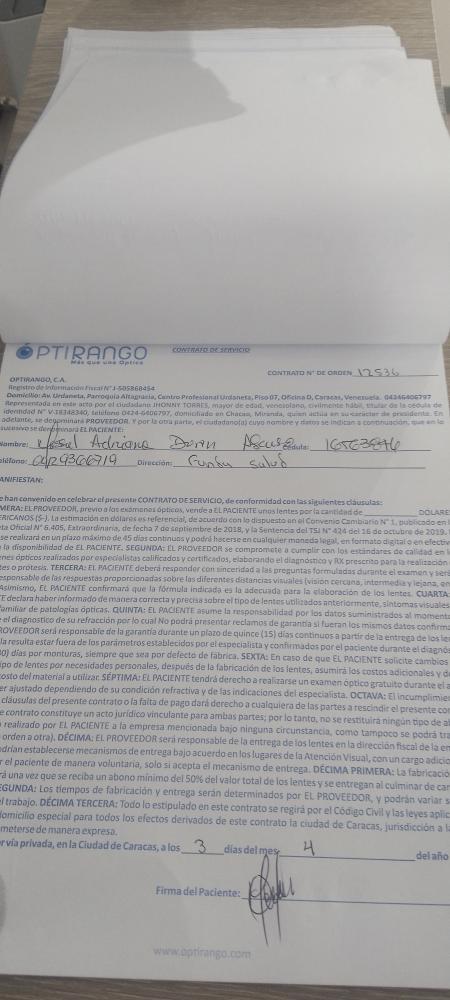 OPTIRANGO
Más que una Óptica
CONTRATO DE SERVICIO
CONTRATO N° DE ORDEN 12536
OPTIRANGO, C.A.
Registro de Información Fiscal N° J-505868454
Domicilio: Av. Urdaneta, Parroquia Altagracia, Centro Profesional Urdaneta, Piso 07, Oficina D, Caracas, Venezuela. 04246406797
Representada en este acto por el ciudadano JHONNY TORRES, mayor de edad, venezolano, civilmente hábil, titular de la cédula de
identidad N° V-18348340, teléfono 0424-6406797, domiciliado en Chacao, Miranda, quien actúa en su carácter de presidente. En
adelante, se denominará PROVEEDOR. Y por la otra parte, el ciudadano(a) cuyo nombre y datos se indican a continuación, que en lo
sucesivo se denominará EL PACIENTE:
Nombre: Adriana cédula:
eléfono: Dirección: Funda Salud
ANIFIESTAN:
e han convenido en celebrar el presente CONTRATO DE SERVICIO, de conformidad con las siguientes cláusulas:
MERA: EL PROVEEDOR, previo a los exámenes ópticos, vende a EL PACIENTE unos lentes por la cantidad de DÓLARES
ERICANOS ($-). La estimación en dólares es referencial, de acuerdo con lo dispuesto en el Convenio Cambiario N° 1, publicado en l
ta Oficial N° 6.405, Extraordinaria, de fecha 7 de septiembre de 2018, y la Sentencia del TSJ N° 424 del 16 de octubre de 2019.
se realizará en un plazo máximo de 45 días continuos y podrá hacerse en cualquier moneda legal, en formato digital o en efectiv
la disponibilidad de EL PACIENTE. SEGUNDA: EL PROVEEDOR se compromete a cumplir con los estándares de calidad en l
nes ópticos realizados por especialistas calificados y certificados, elaborando el diagnóstico y RX prescrito para la realización
tes o prótesis. TERCERA: EL PACIENTE deberá responder con sinceridad a las preguntas formuladas durante el examen y ser
esponsable de las respuestas proporcionadas sobre las diferentes distancias visuales (visión cercana, intermedia y lejana), en
Asimismo, EL PACIENTE confirmará que la fórmula indicada es la adecuada para la elaboración de los lentes. CUARTA:
TE declara haber informado de manera correcta y precisa sobre el tipo de lentes utilizados anteriormente, síntomas visuales
amiliar de patologías ópticas. QUINTA: EL PACIENTE asume la responsabilidad por los datos suministrados al moment
el diagnostico de su refracción por lo cual No podrá presentar reclamos de garantía si fueran los mismos datos confirma
ROVEEDOR será responsable de la garantía durante un plazo de quince (15) días continuos a partir de la entrega de los le
la resulta estar fuera de los parámetros establecidos por el especialista y confirmados por el paciente durante el diagnós
0) días por monturas, siempre que sea por defecto de fábrica. SEXTA: En caso de que EL PACIENTE solicite cambios
ipo de lentes por necesidades personales, después de la fabricación de los lentes, asumirá los costos adicionales y d
osto del material a utilizar. SÉPTIMA: EL PACIENTE tendrá derecho a realizarse un examen óptico gratuito durante el a
er ajustado dependiendo de su condición refractiva y de las indicaciones del especialista. OCTAVA: El incumplimien
cláusulas del presente contrato o la falta de pago dará derecho a cualquiera de las partes a rescindir el presente con
e contrato constituye un acto jurídico vinculante para ambas partes; por lo tanto, no se restituirá ningún tipo de a
realizado por EL PACIENTE a la empresa mencionada bajo ninguna circunstancia, como tampoco se podrá tra
orden a otra). DÉCIMA: EL PROVEEDOR será responsable de la entrega de los lentes en la dirección fiscal de la em
odrían establecerse mecanismos de entrega bajo acuerdo en los lugares de la Atención Visual, con un cargo adicio
r el paciente de manera voluntaria, solo si acepta el mecanismo de entrega. DÉCIMA PRIMERA: La fabricació
rá una vez que se reciba un abono mínimo del 50% del valor total de los lentes y se entregan al culminar de can
EGUNDA: Los tiempos de fabricación y entrega serán determinados por EL PROVEEDOR, y podrán variar s
el trabajo. DÉCIMA TERCERA: Todo lo estipulado en este contrato se regirá por el Código Civil y las leyes aplic
domicilio especial para todos los efectos derivados de este contrato la ciudad de Caracas, jurisdicción a la
meterse de manera expresa.
or vía privada, en la Ciudad de Caracas, a los 3 días del mes 4 del año
Firma del Paciente:
www.optirango.com